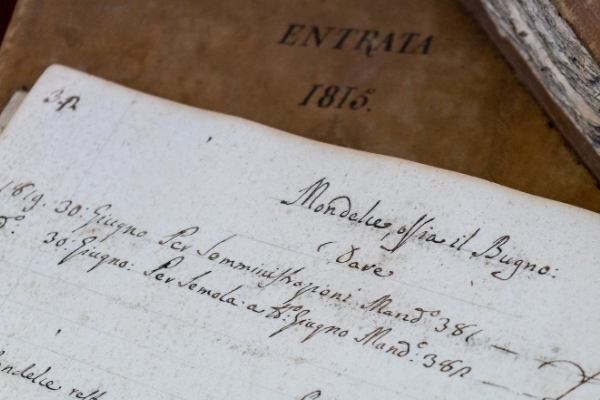 ENTRATA
1815.
Mondelce ossia il Bugno:
Dare
1819. 30: Giugno Per Somministrazioni Mand.º 386
d.º 30: Giugno: Per Semola: a Giugno Mand.º